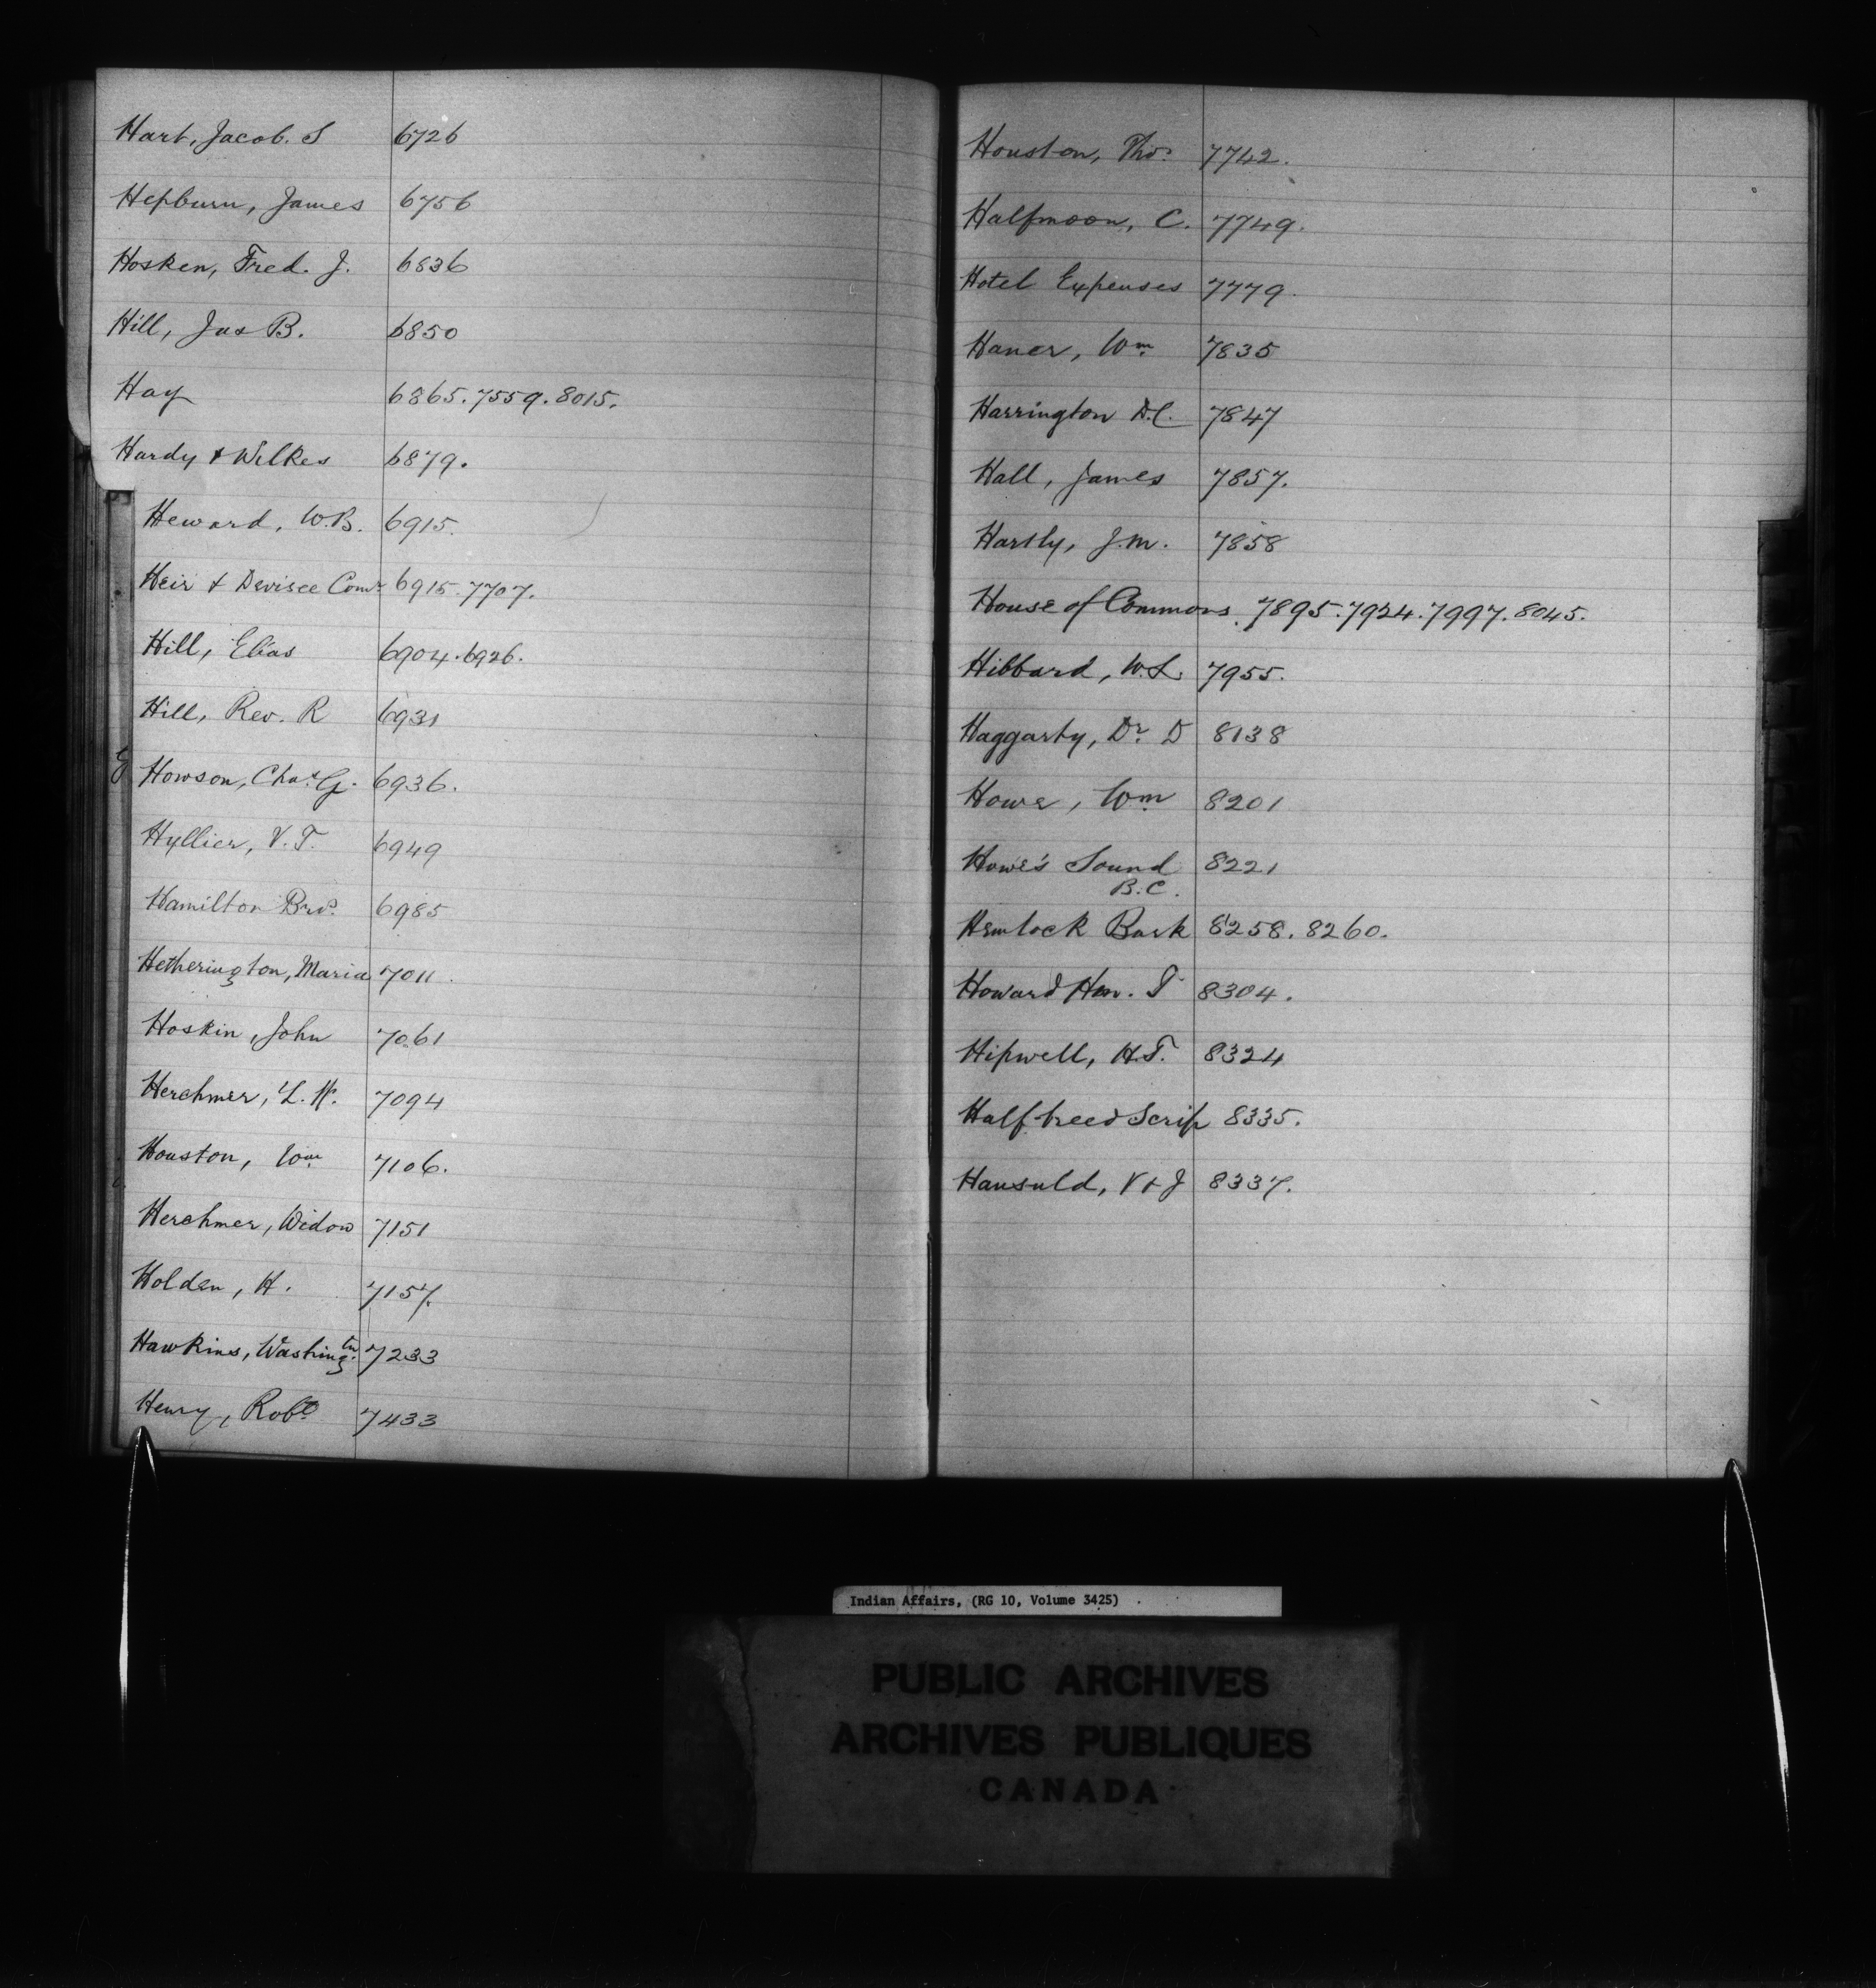 Hart, Jacob. S 6726
Hepburn, James 6756
Hosken, Fred. J. 6836
Hill, Jas B. 6850
Hay 6865. 7559. 8015.
Hardy & Wilkes 6879.
Heward, W.B. 6915.
Heir & Devisee Comr 6915. 7707.
Hill, Elias 6904. 6926.
Hill, Rev. R 6931
Howson, Chas. G. 6936.
Hyllier, V.T. 6949
Hamilton Bros. 6985
Hetherington, Maria 7011.
Hoskin, John 7061
Herchmer, L. W. 7094
Houston, Wm. 7106.
Herchmer, Widow 7151
Holden, H. 7157.
Hawkins, Washingtn. 7233
Henry, Robt. 7433
Houston, Thos. 7742.
Halfmoon, C. 7749.
Hotel Expenses 7779.
Haner, Wm. 7835
Harrington D.C. 7847
Hall, James 7857.
Harsly, J.M. 7858
House of Commons. 7895. 7924. 7997. 8045.
Hibbard, W.L. 7955.
Haggarty, Dr. D 8138
Howe, Wm 8201
Howe's Sound 8221
B.C.
Hemlock Bark 8258. 8260.
Howard Hen. T 8304.
Hipwell, H.T. 8324
Half breed Scrip 8335.
Hansuld, V & J 8337.
Indian Affairs, (RG 10, Volume 3425)
PUBLIC ARCHIVES
ARCHIVES PUBLIQUES
CANADA